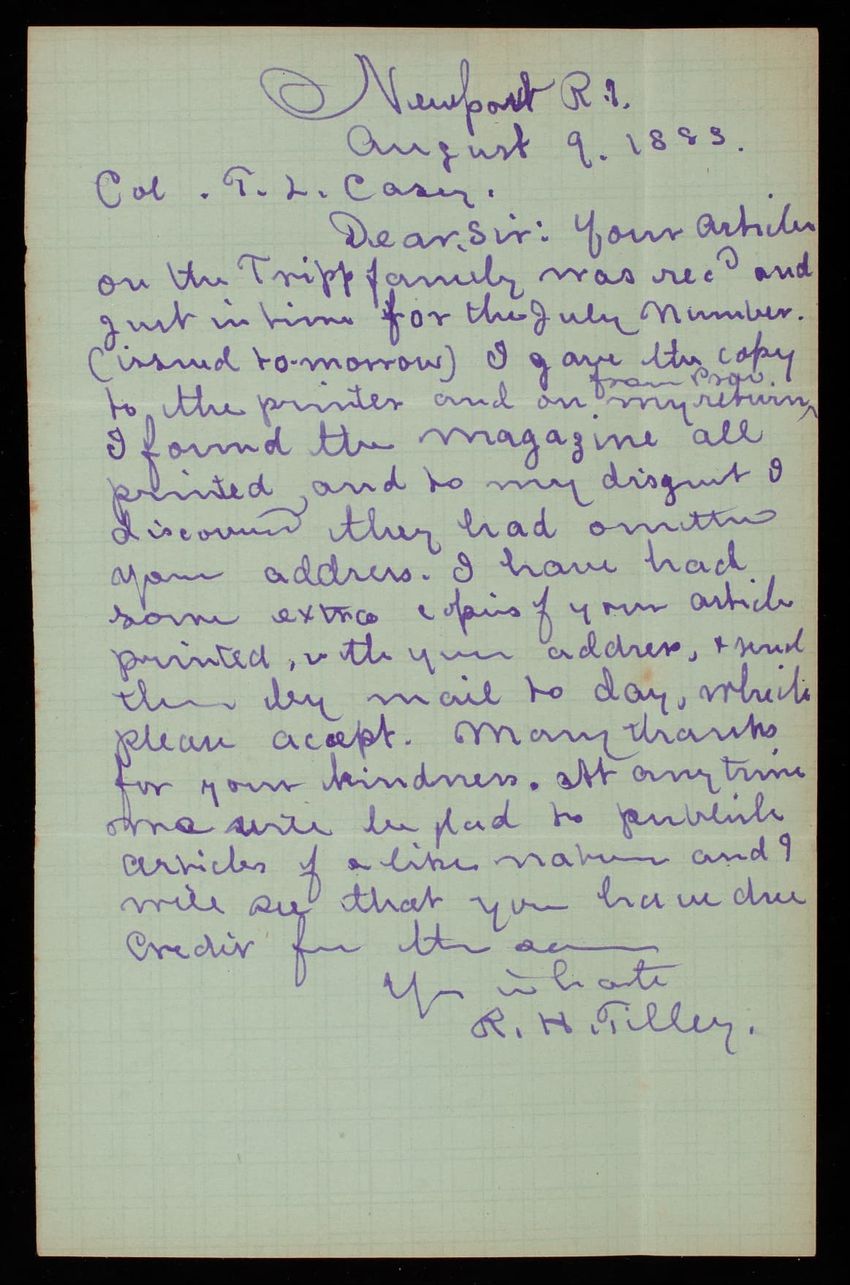 Newport R.I.
August 9. 1883.
Col. T. L. Casey.
Dear Sir: Your article
on the Tripp family was rec'd and
just in time for the July Number.
(issued to-morrow) I gave the copy
from Prov.
to the printer and on my return,
I found the magazine all
printed, and to my disgust I
discovered they had omitted
your address. I have had
some extra copies of your article
printed, with your address, & send
them by mail to day, which
please accept. Many thanks
for your kindness. At any time
we will be glad to publish
articles of a like nature and I
will see that you have due
Credit for the same
Yrs in haste
R. H. Tilley.